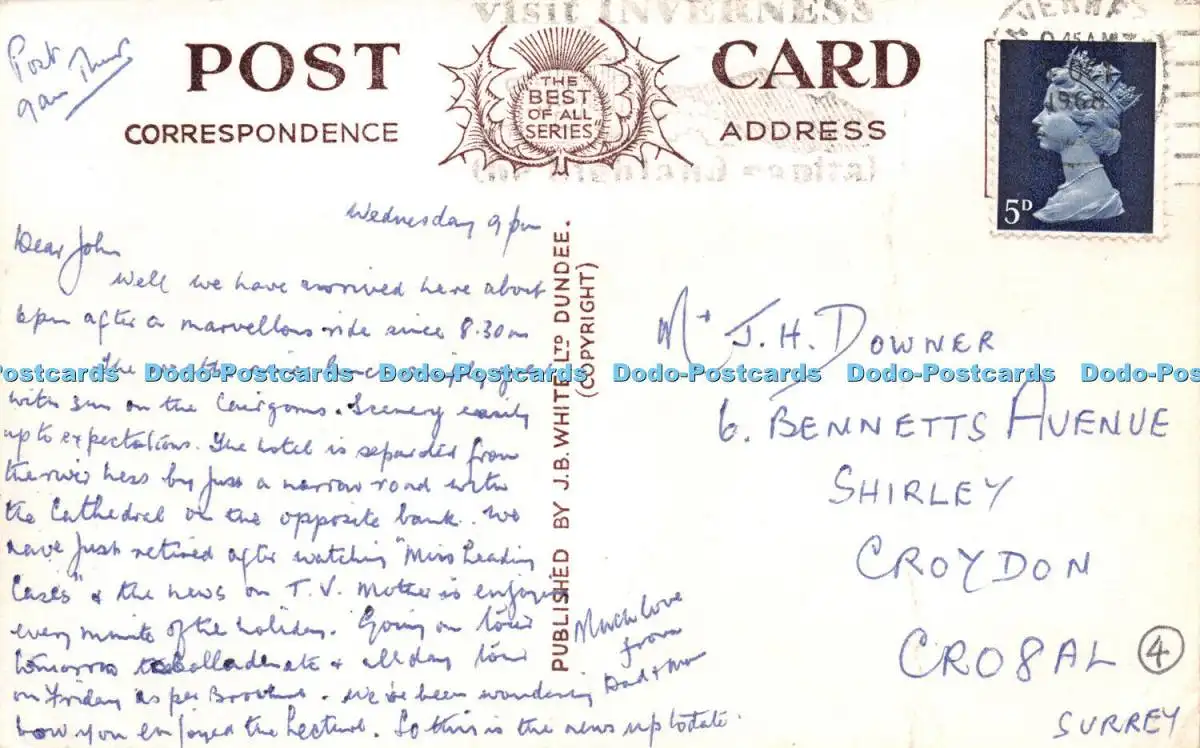 visit INVERNESS
the highland capital
INVERNESS
9 45 AM
1968
5D
Post
9am Thurs
POST CARD
THE
BEST
OF ALL
SERIES"
CORRESPONDENCE
ADDRESS
Wednesday 9pm
Dear John
Well we have arrived here about
6pm after a marvellous ride since 8.30am
The
with sun on the Cairgorms. Scenery easily
up to expectations. The hotel is separated from
the river Ness by just a narrow road with
the Cathedral on the opposite bank. We
have just retired after watching "Miss Leading
Cases" & the news on T.V. Mother is enjoying
every minute of the holiday. Going on tour
tomorrow & all day tour
on Friday as per Brochure. We've been wondering
how you enjoyed the Lecture. So this is the news up to date.
Much love
from
Dad & Mum
PUBLISHED BY J.B. WHITE LTD DUNDEE.
(COPYRIGHT)
Mr J. H. DOWNER
6. BENNETTS AVENUE
SHIRLEY
CROYDON
CRO8AL 4
SURREY
Dodo-Postcards Dodo-Postcards Dodo-Postcards Dodo-Postcards Dodo-Postcards